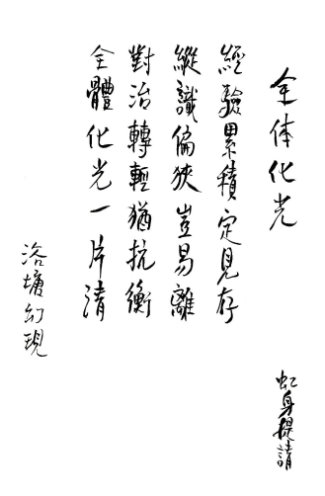 全体化光
經驗累積定見存
縱識偏狹豈易離
對治轉輕猶抗衡
全體化光一片清
洛塘幻現
虹身提請